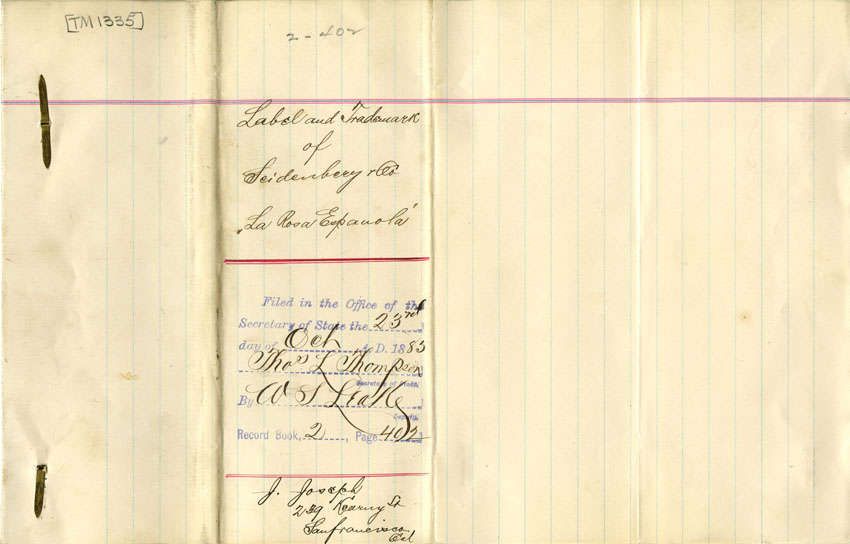 [TM 1335]
2-402
Label and Trademark
of
Seidenberg & Co
"La Rosa Espanola"
Filed in the Office of the
Secretary of State the 23rd
day of Oct A.D. 1883
Thos L Thompson
Secretary of State.
By W S Leake
Deputy.
Record Book, 2, Page 402
J. Joseph
239 Kearny St
Sanfrancisco
Cal